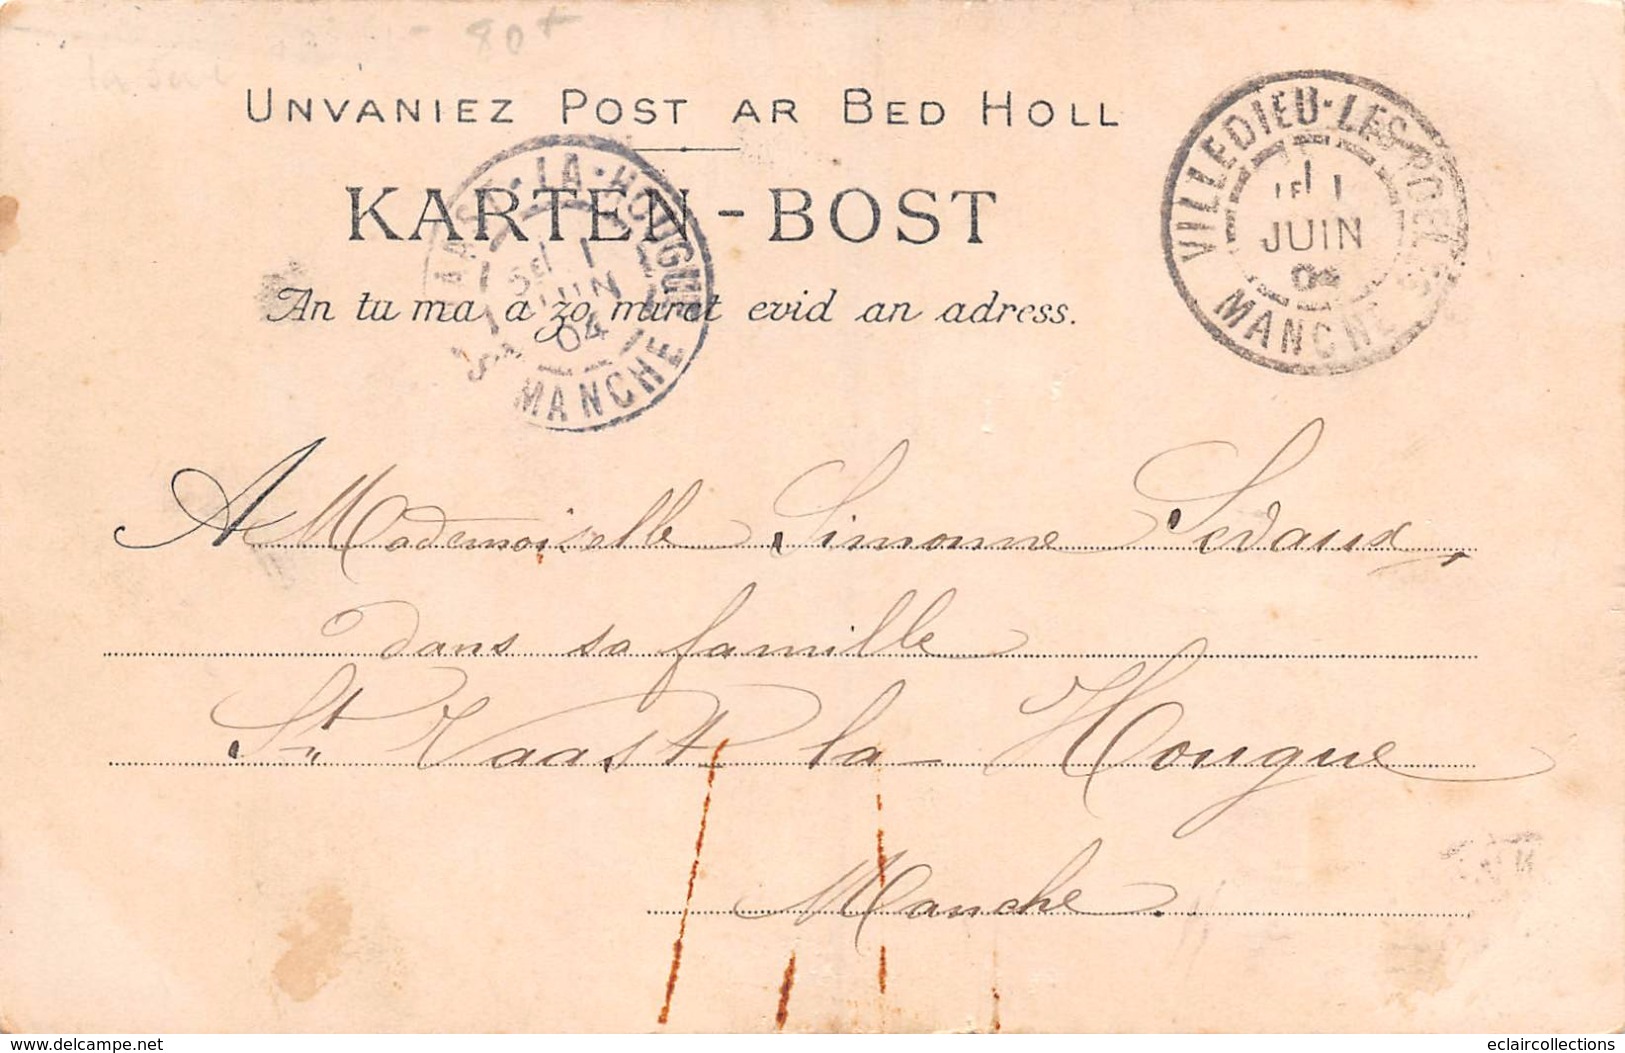 80+
UNVANIEZ POST AR BED HOLL
KARTEN-BOST
An tu ma a zo miret evid an adress.
VILLEDIEU-LES-POELES
1
JUIN
04
MANCHE
ST-VAAST-LA-HOUGUE
JUIN
04
MANCHE
A Mademoiselle Simonne Sedaux,
dans sa famille
St Vaast la Hougue
Manche.
delcampe.net
eclaircollections